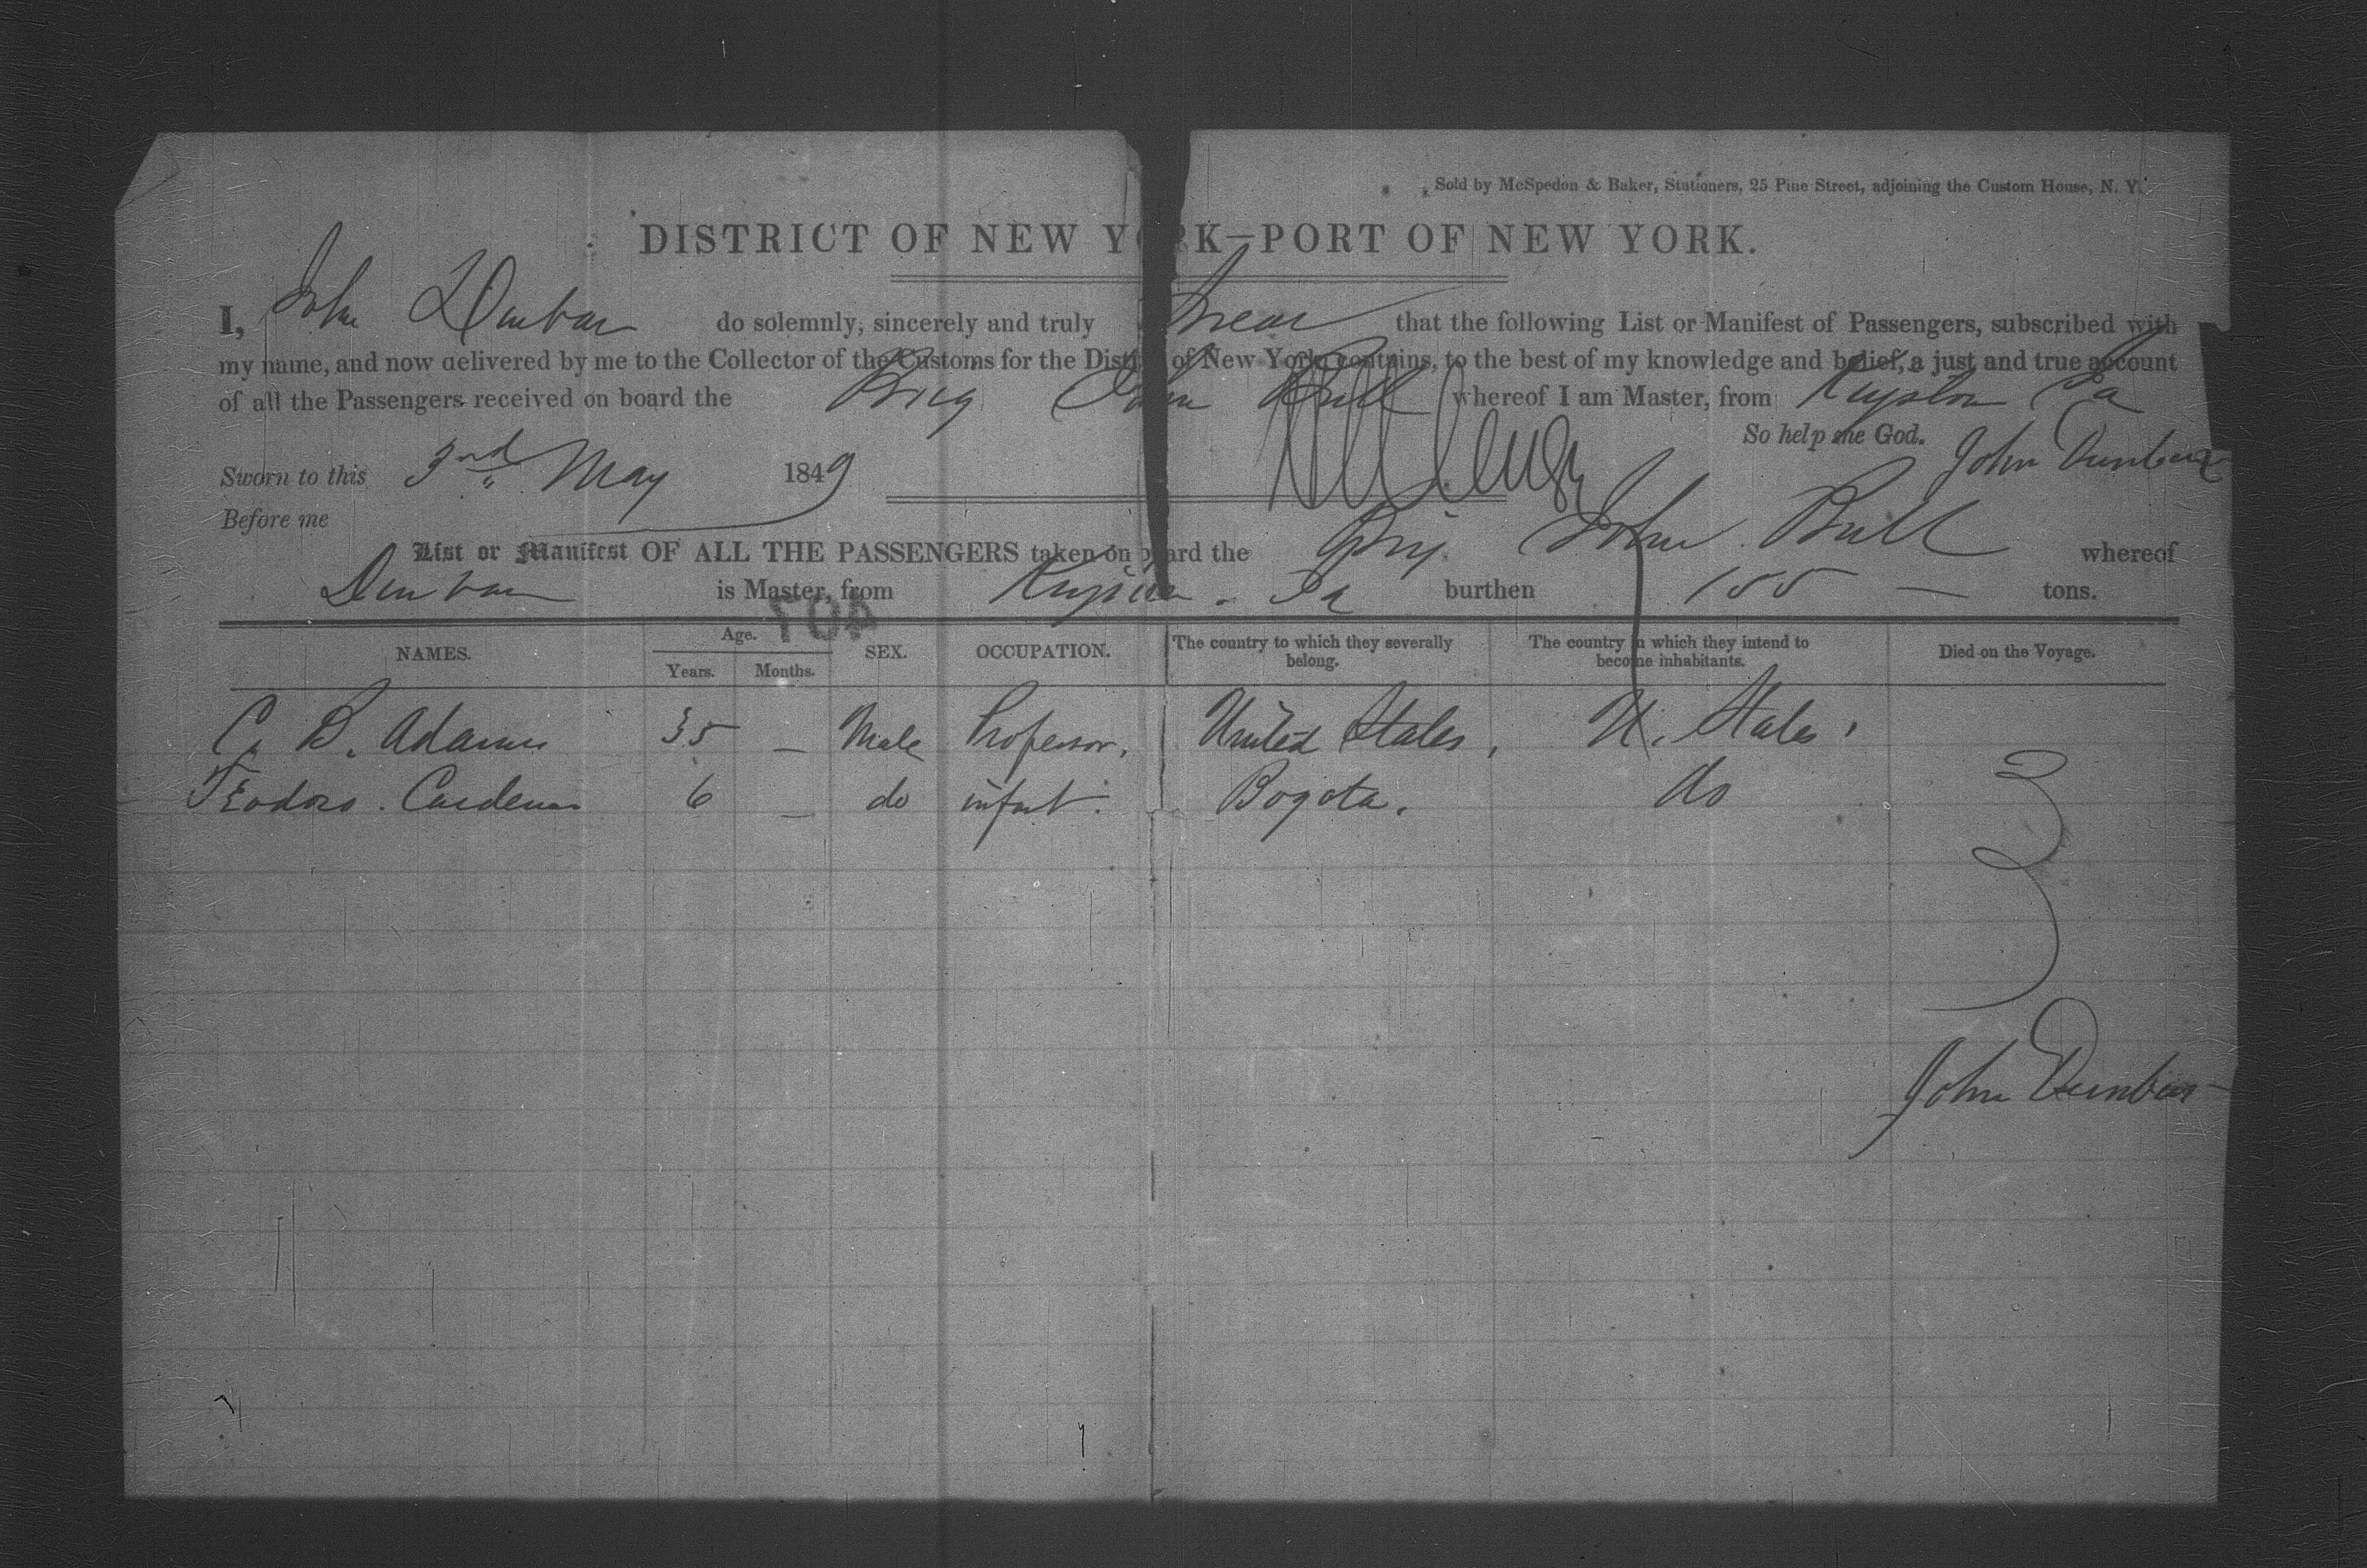 Sold by McSpedon & Baker, Stationers, 25 Pine Street, adjoining the Custom House, N. Y.
DISTRICT OF NEW YORK—PORT OF NEW YORK.
I, John Dunbar do solemnly, sincerely and truly Swear that the following List or Manifest of Passengers, subscribed with
my name, and now delivered by me to the Collector of the Customs for the District of New York contains, to the best of my knowledge and belief, a just and true account
of all the Passengers received on board the Brig John Bull whereof I am Master, from Kingston Ja
So help me God.
Sworn to this 3rd May 1849 John Dunbar
Before me
List or Manifest OF ALL THE PASSENGERS taken on board the Brig John Bull whereof
Dunbar is Master, from Kingston Ja burthen 155 — tons.
NAMES. Age. Years. Months. SEX. OCCUPATION. The country to which they severally belong. The country in which they intend to become inhabitants. Died on the Voyage.
C. B. Adams 35 — Male Professor, United States, U. States,
Teodoro. Cardenas 6 — do infant. Bogota. do
John Dunbar